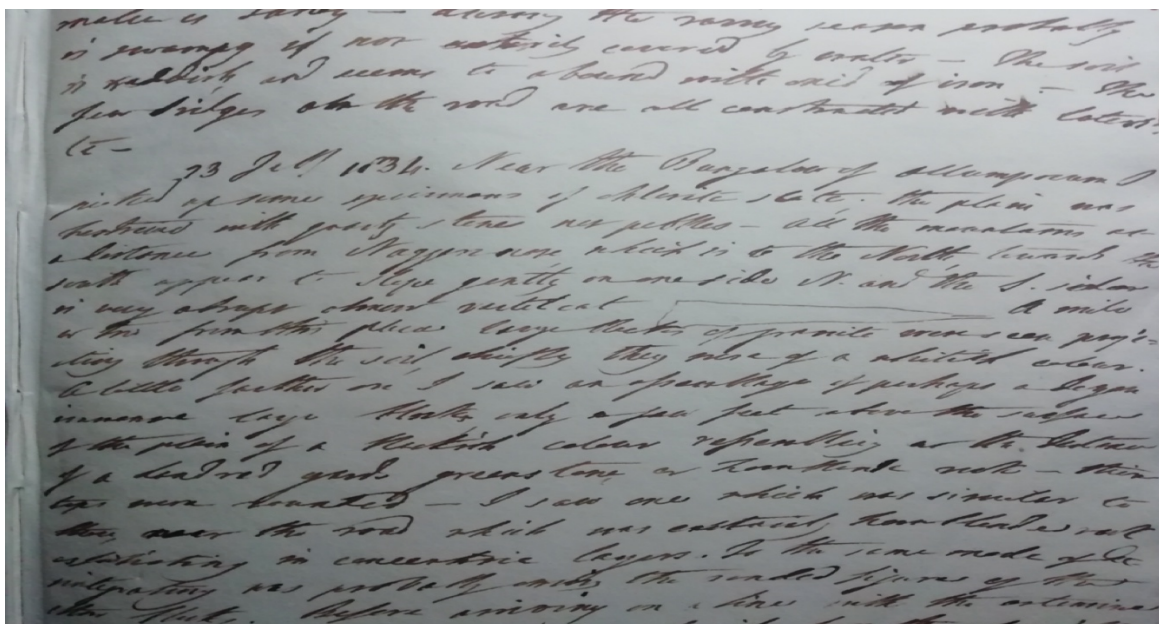 make is sandy — during the rainy season probably
is swampy if not entirely covered by water — The soil
is reddish, and seems to abound with oxid of iron — The
few bridges on the road are all constructed with lateri-
te —
23 Jully 1834. Near the Bungalow of Allumparum I
picked up some specimens of chlorite slate. the plain was
bestrewed with stones not pebbles — all the mountains at
a distance from Naggery nose which is to the North, towards the
south appear to slope gently on one side N. and the S. side
is very abrupt almost vertical A mile
or two from this place large blocks of granite were seen projec-
ting through the soil, chiefly they were of a whitish colour.
A little further on I saw an assemblage of perhaps a dozen
immense large blocks, only a few feet above the surface
of the plain of a blackish colour resembling at the distance
of a hundred yards greenstone or hornblende rock — their
tops were rounded — I saw one which was similar to
them near the road which was entirely hornblende rock
exfoliating in concentric layers. To the same mode of de
sintegration was probably owing the rounded figure of the
other blocks. Before arriving on a line with the extreme